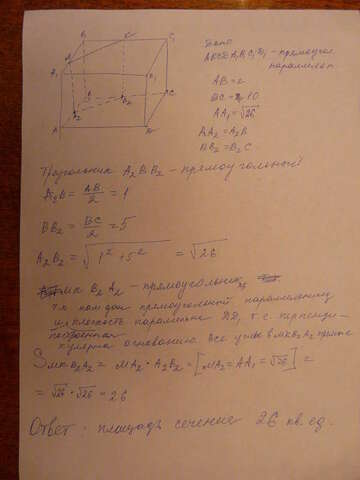 Дано
ABCDA₁B₁C₁D₁ - прямоугол.
параллел.
AB = 2
BC = 10
AA₁ = √26
AA₂ = A₂B
BB₂ = B₂C
Треугольник A₂BB₂ - прямоугольный
A₂B = AB/2 = 1
BB₂ = BC/2 = 5
A₂B₂ = √1² + 5² = √26
МКB₂A₂ - прямоугольник,
т.к. нам дан прямоугольный параллелепипед
и плоскость параллельна
основанию. Все углы в МКB₂A₂ прямые
Sмкв₂А₂ = МА₂ · A₂B₂ = [МА₂ = AA₁ = √26] =
= √26 · √26 = 26
Ответ: площадь сечения 26 кв. ед.